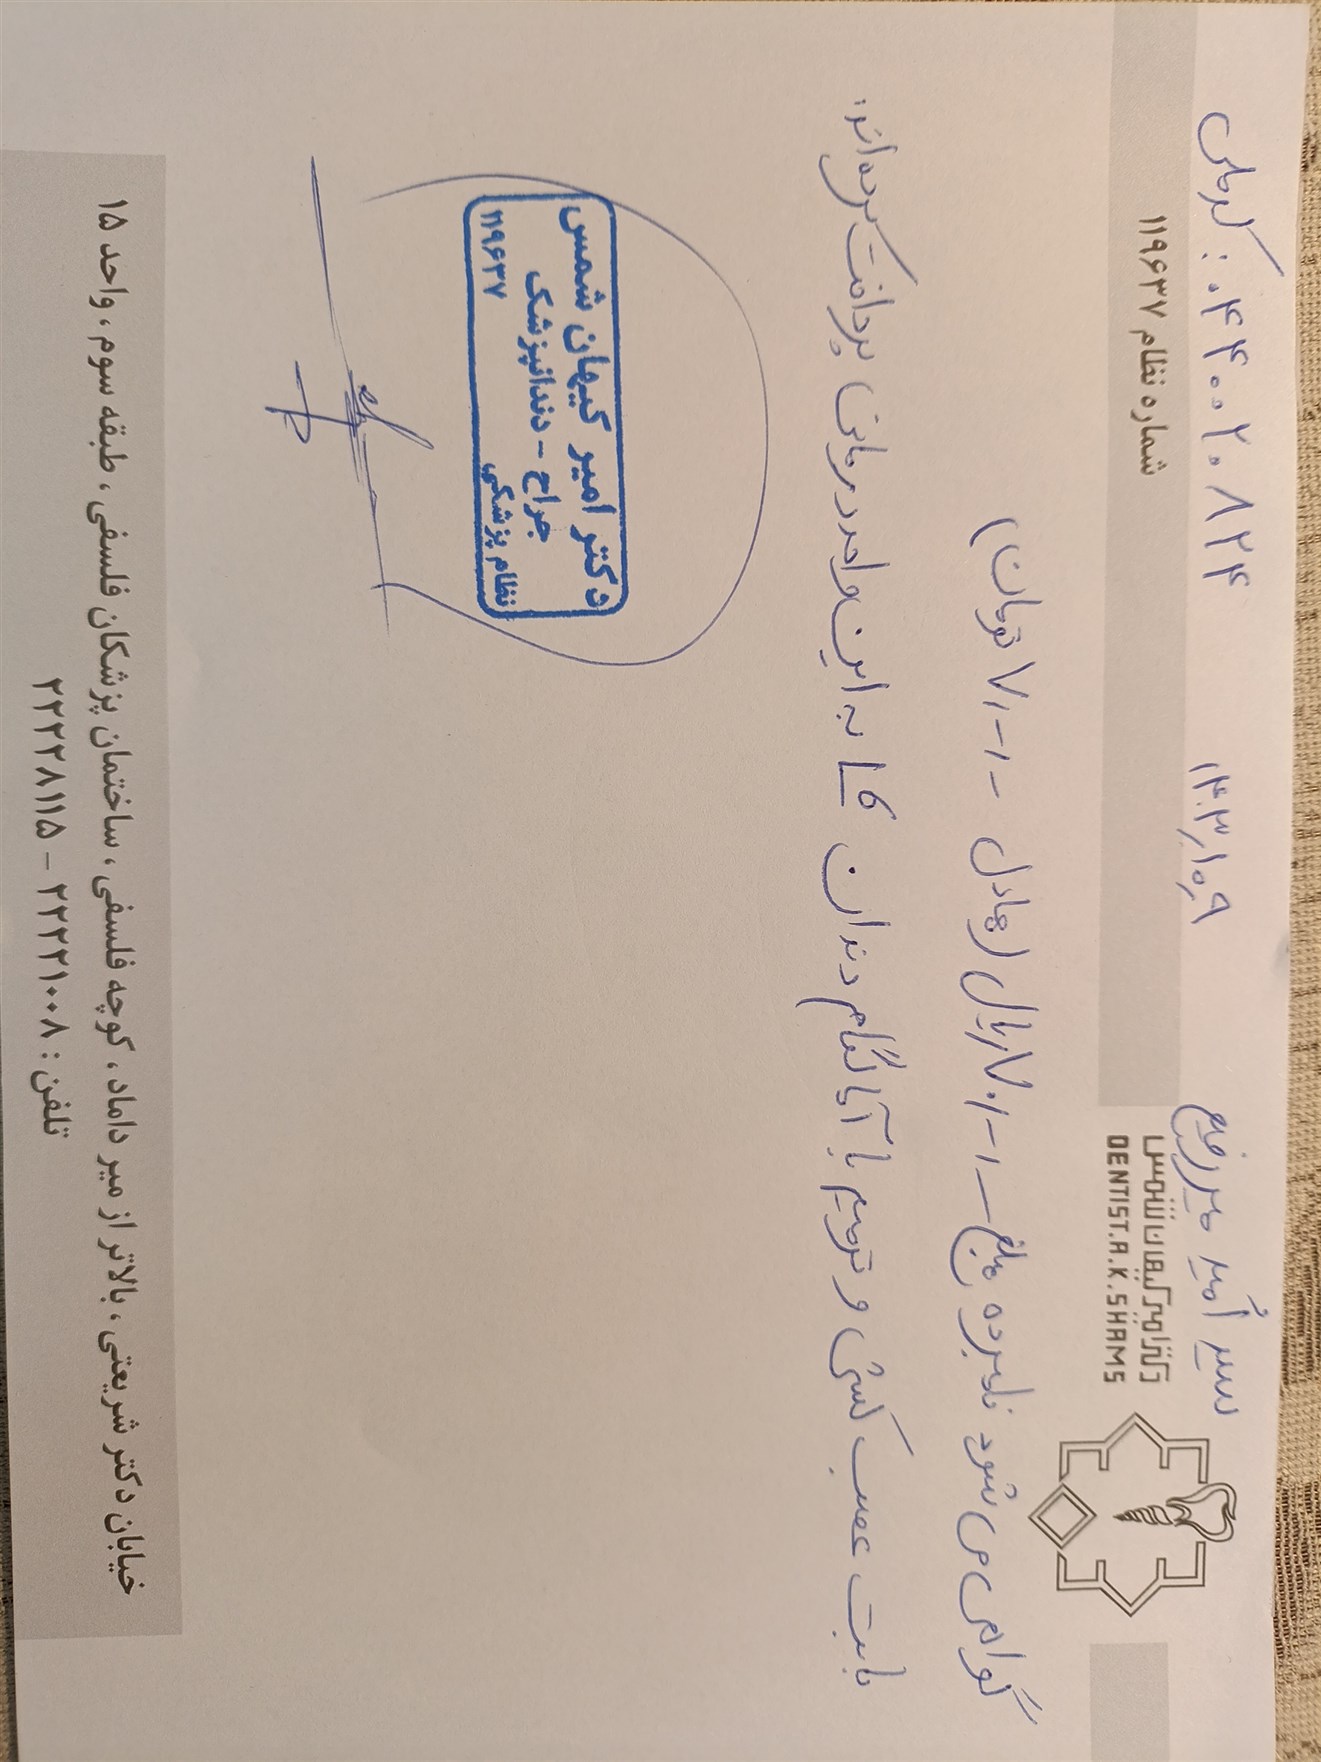 سید اُمید میررفیع
۱۴۰۳/۱۰/۹
کدملی: ۰۴۴۰۰۲۰۸۲۴
دکتر امیر کیهان شمس
DENTIST.A.K.SHAMS
شماره نظام ۱۱۹۶۳۷
گواهی می شود نامبرده مبلغ ریال (معادل تومان)
بابت عصب کشی و ترمیم با آمالگام دندان به این واحد درمانی پرداخت کرده‌اند.
دکتر امیر کیهان شمس
جراح - دندانپزشک
نظام پزشکی ۱۱۹۶۳۷
خیابان دکتر شریعتی ، بالاتر از میر داماد ، کوچه فلسفی ، ساختمان پزشکان فلسفی ، طبقه سوم ، واحد ۱۵
تلفن : ۲۲۲۲۱۰۰۸ – ۲۲۲۲۸۱۱۵